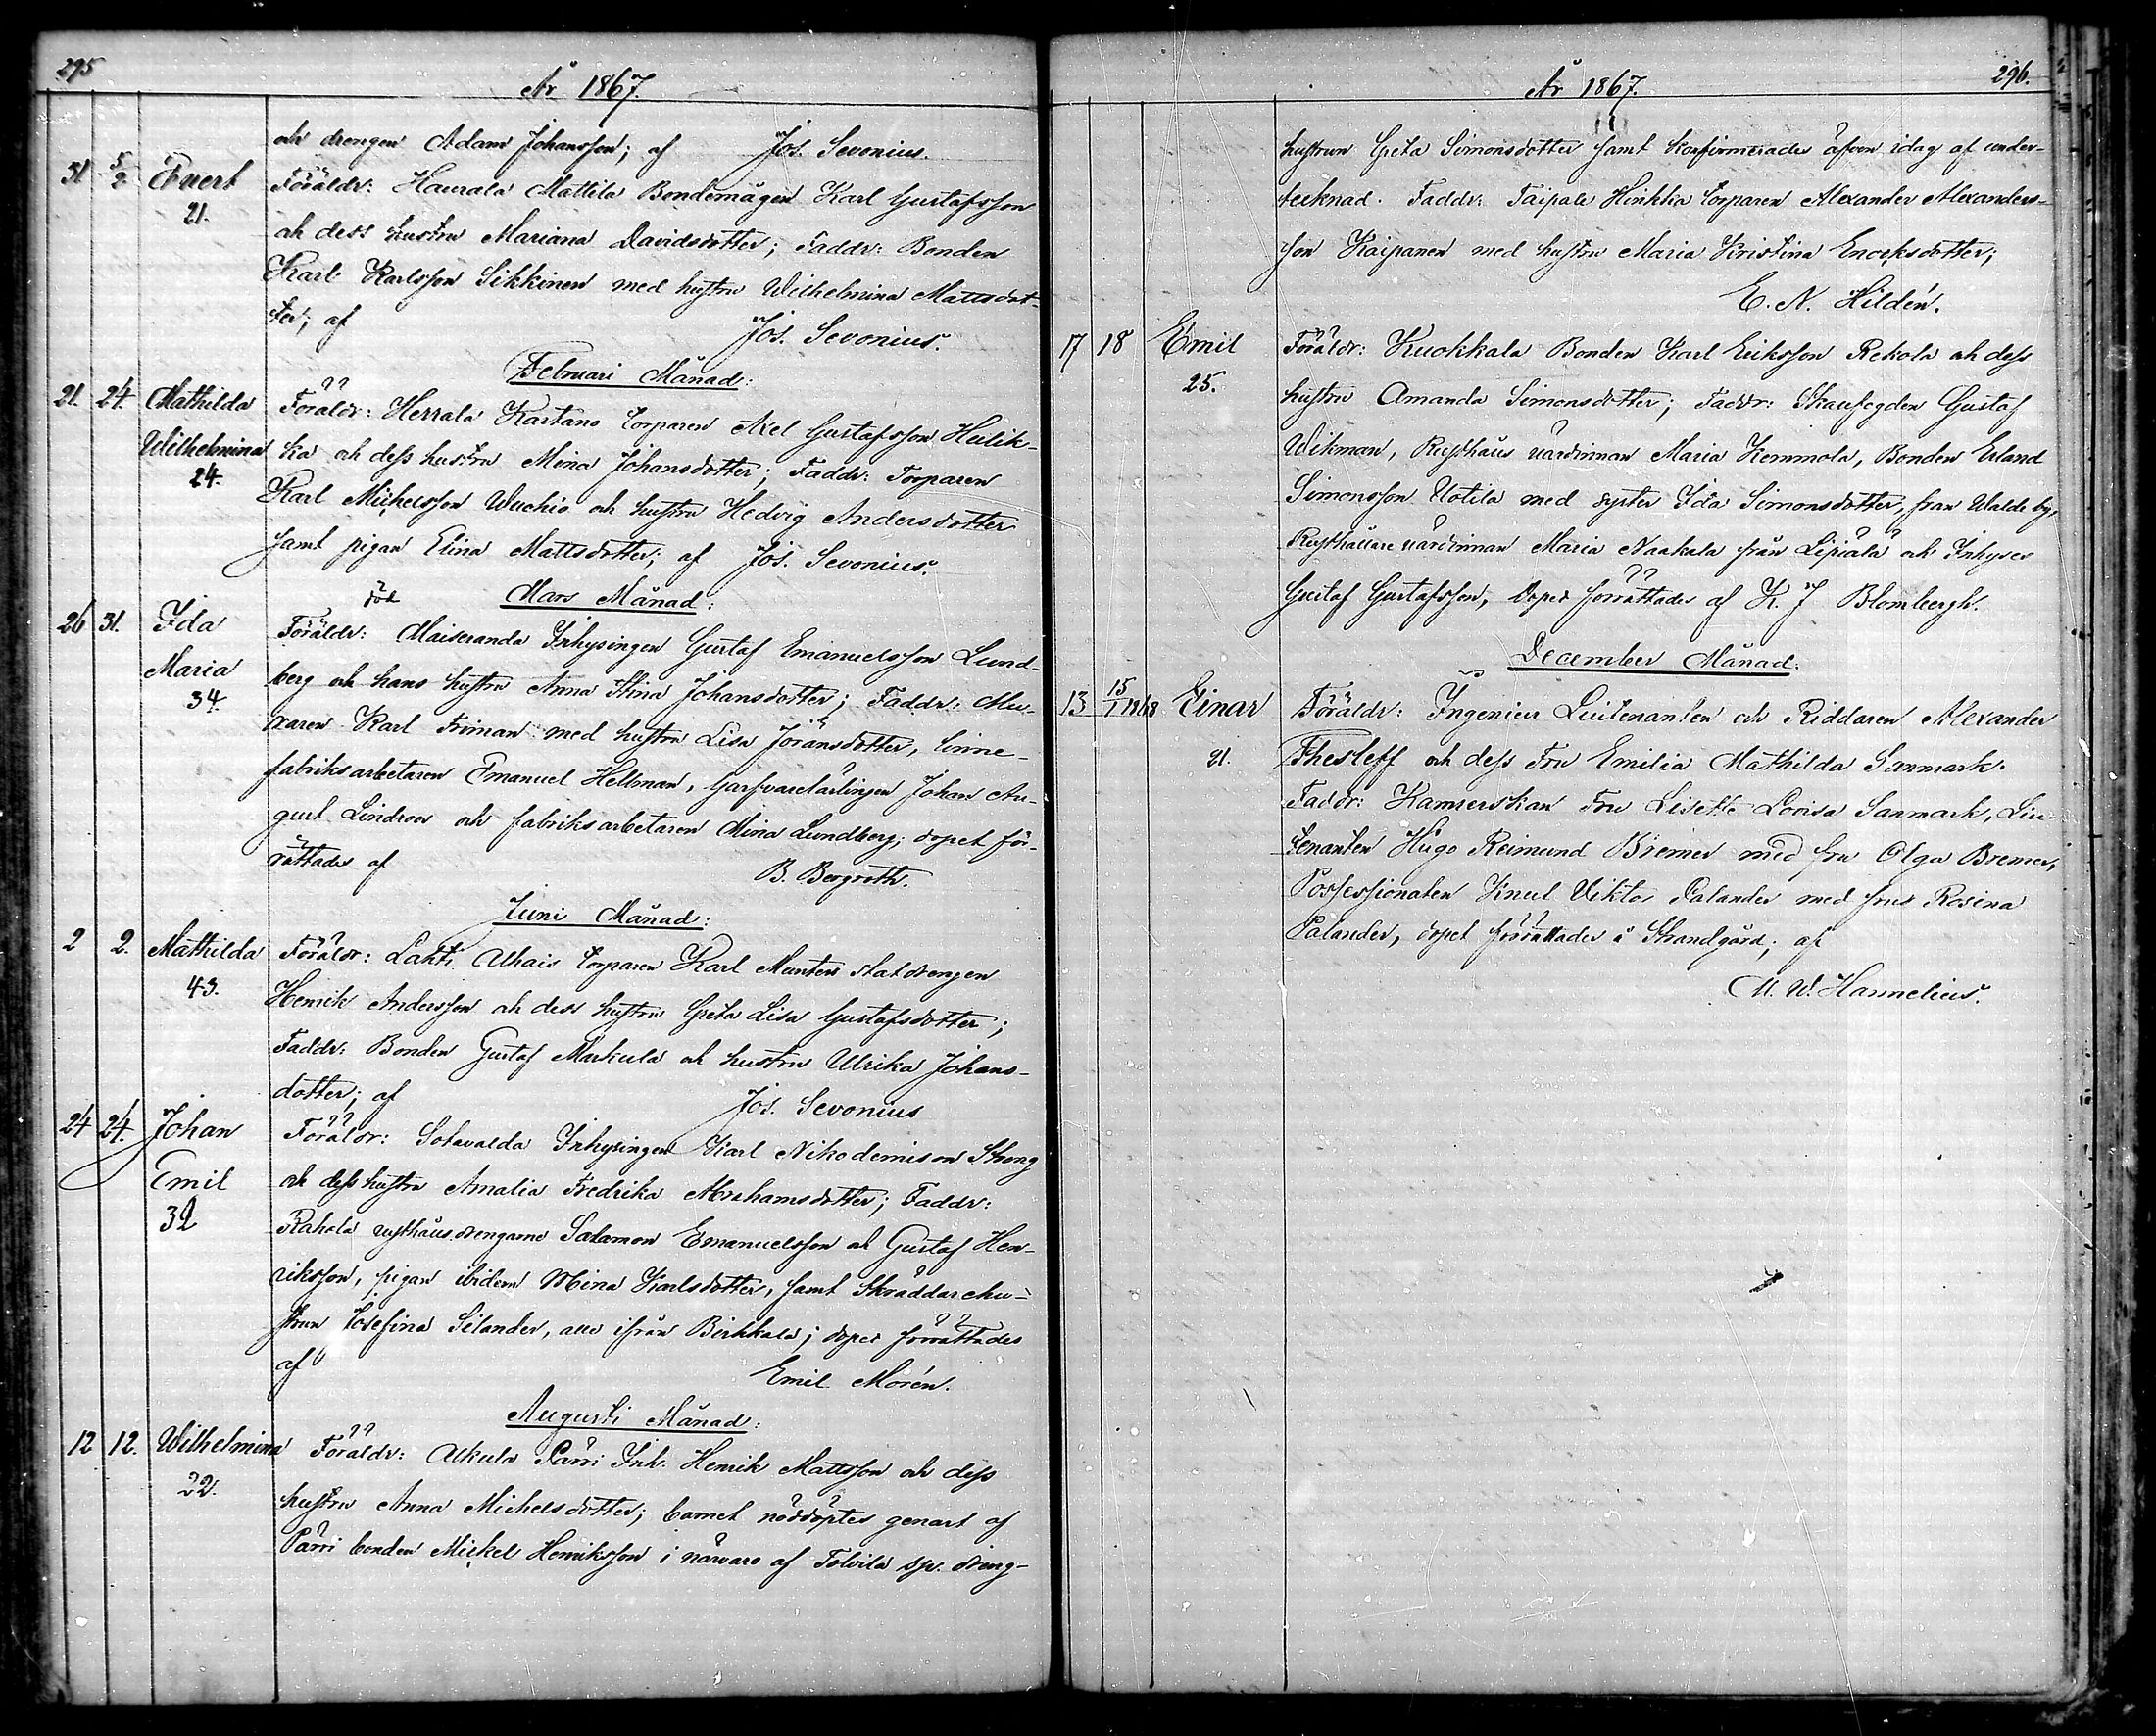 295
År 1867.
och drengen Adam Johansson; af Jos. Sevonius.
31 5/2 Evert Föräldr: Haurala Mattila Bondemågen Karl Gustafsson
21. och dess hustru Mariana Davidsdotter; Faddr: Bonden
Karl Karlsson Sikkinen med hustru Wilhelmina Mattsdot-
ter; af Jos. Sevonius.
Februari Månad:
21. 24. Mathilda Föräldr: Herrala Kartano torparen Axel Gustafsson Heilik-
Wilhelmina ka och dess hustru Mina Johansdotter; Faddr: Torparen
24. Karl Michelsson Wuohio och hustru Hedvig Andersdotter
samt pigan Elina Mattsdotter; af Jos. Sevonius.
död Mars Månad:
26 31. Ida Föräldr: Maiseranda Inhysingen Gustaf Emanuelsson Lund-
Maria berg och hans hustru Anna Stina Johansdotter; Faddr: Mu-
34. raren Karl Friman med hustru Lisa Jöransdotter, linne-
fabriksarbetaren Emanuel Hellman, Garfvarelärlingen Johan Au-
gust Lindroos och fabriksarbetaren Mina Lundberg; dopet för-
rättades af B. Bergroth.
Juni Månad:
2 2. Mathilda Föräldr: Lahti Alhais torparen Karl Munters statdrengen
43. Henrik Andersson och dess hustru Greta Lisa Gustafsdotter;
Faddr: Bonden Gustaf Markula och hustru Ulrika Johans-
dotter; af Jos. Sevonius
24 24. Johan Föräldr: Sotavalda Inhysingen Karl Nikodemison Streng
Emil och dess hustru Amalia Fredrika Abrahamsdotter; Faddr:
32 Rahola rusthålls drengarne Salamon Emanuelsson och Gustaf Hen-
riksson, pigan ibidem Mina Karlsdotter, samt Skräddarehu-
strun Josefina Silander, alla ifrån Birkkala; dopet förrättades
af Emil Morén.
Augusti Månad:
12 12. Wilhelmina Föräldr: Alkula Pärri Inh. Henrik Mattsson och dess
22. hustru Anna Michelsdotter; barnet nöddöptes genast af
Pärri bonden Mickel Henriksson i närvaro af Tolvila sp. dreng-
296.
År 1867.
hustrun Greta Simonsdotter samt konfirmerades äfven idag af under-
tecknad. Faddr: Taipale Hinkka torparen Alexander Alexanders-
son Kaipanen med hustru Maria Kristina Enocksdotter;
E. N. Hildén.
17 18 Emil Föräldr: Kuokkala Bonden Karl Eriksson Rekola och dess
25. hustru Amanda Simonsdotter; Faddr: Gustaf
Wikman, Rusthålls värdinnan Maria Kemmola, Bonden Erland
Simonsson Uotila med syster Ida Simonsdotter, från Walde by,
Rusthållare värdinnan Maria Naakala från Lipiälä och Inhyses
Gustaf Gustafsson, dopet förrättades af K. J Blombergh.
December Månad.
13 15/1 1868 Einar Föräldr: Ingenieur Leutenanten och Riddaren Alexander
21. Thesleff och dess Fru Emilia Mathilda Sanmark.
Faddr: Kamrerskan Fru Lisette Lovisa Sanmark, Lieu-
tenanten Hugo Reimund Bremer med fru Olga Bremer,
Possessionaten Knut Viktor Palander med fru Rosina
Palander, dopet förrättades å Strandgård; af
M. W. Hannelius.